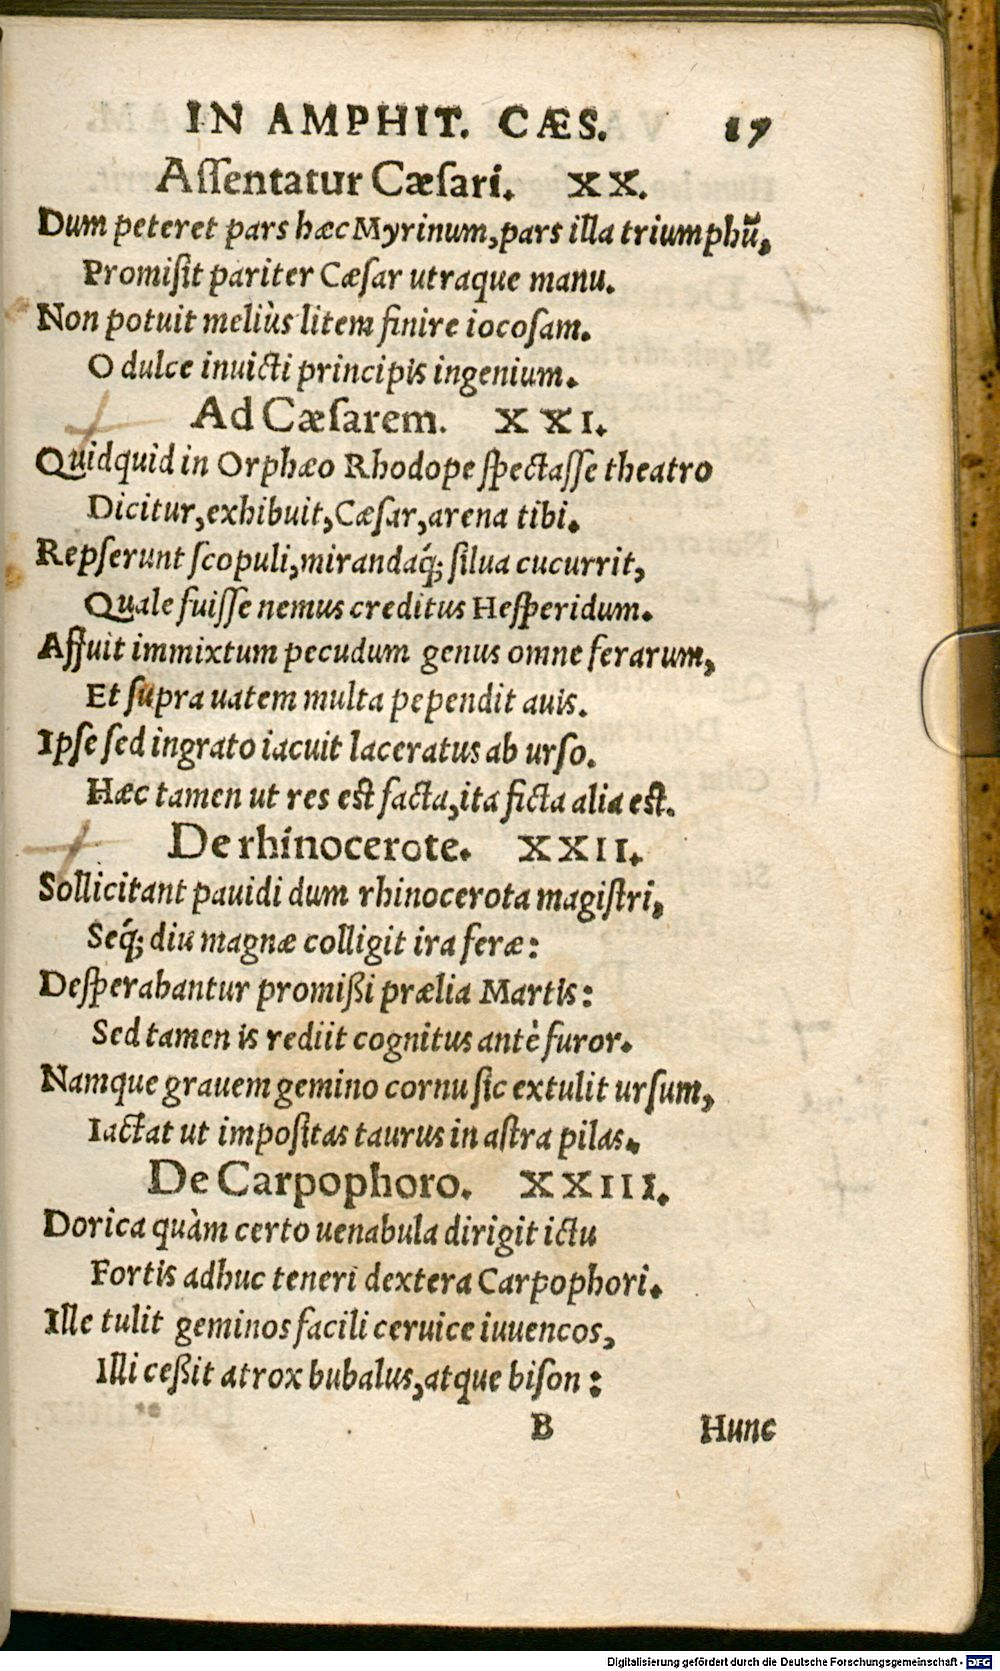 IN AMPHIT. CÆS. 17
Aſſentatur Cæſari. XX.
Dum peteret pars hæc Myrinum, pars illa triumphũ,
Promiſit pariter Cæſar utraque manu.
Non potuit meliùs litem finire iocoſam.
O dulce inuicti principis ingenium.
Ad Cæſarem. XXI.
Quidquid in Orphæo Rhodope ſpectaſſe theatro
Dicitur, exhibuit, Cæſar, arena tibi.
Repſerunt ſcopuli, mirandaq́; ſilua cucurrit,
Quale fuiſſe nemus creditus Heſperidum.
Affuit immixtum pecudum genus omne ferarum,
Et ſupra uatem multa pependit auis.
Ipſe ſed ingrato iacuit laceratus ab urſo.
Hæc tamen ut res eſt facta, ita ficta alia eſt.
De rhinocerote. XXII.
Sollicitant pauidi dum rhinocerota magiſtri,
Seq́; diu magnæ colligit ira feræ:
Deſperabantur promißi prælia Martis:
Sed tamen is rediit cognitus antè furor.
Namque grauem gemino cornu ſic extulit urſum,
Iactat ut impoſitas taurus in aſtra pilas.
De Carpophoro. XXIII.
Dorica quàm certo uenabula dirigit ictu
Fortis adhuc teneri dextera Carpophori.
Ille tulit geminos facili ceruice iuuencos,
Illi ceßit atrox bubalus, atque biſon:
B Hunc
Digitalisierung gefördert durch die Deutsche Forschungsgemeinschaft - DFG